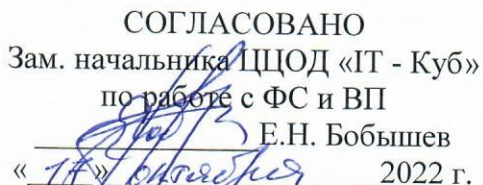 СОГЛАСОВАНО
Зам. начальника ЦЦОД «IT - Куб»
по работе с ФС и ВП
Е.Н. Бобышев
«17» октября 2022 г.